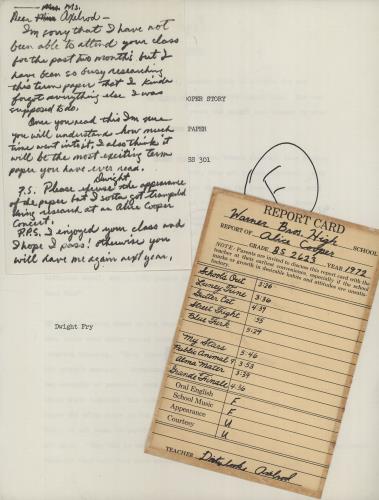 Mrs. Ms.
Dear Miss Axelrod—
I'm sorry that I have not
been able to attend your class
for the past two months but I
have been so busy researching
this term paper that I kinda
forgot everything else I was
supposed to do.
Once you read this I'm sure
you will understand how much
time went into it, I also think it
will be the most exciting term
paper you have ever read.
Dwight
P.S. Please excuse the appearance
of the paper but I sorta got trampled
doing research at an Alice Cooper
Concert.
P.P.S. I enjoyed your class and
I hope I pass! Otherwise you
will have me again next year.
OOPER STORY
PAPER
SS 301
F
Dwight Fry
REPORT CARD
Warner Bros. High SCHOOL
REPORT OF Alice Cooper
GRADE BS 2623 YEAR 1972
NOTE: Parents are invited to discuss this report card with the
teacher at their earliest convenience, especially if the school
marks or growth in desirable habits and attitudes are unsatis-
Schools Out 3:26
Luney Tune 3:36
Gutter Cat 4:39
Street Fight :55
Blue Turk 5:29
My Stars 5:46
Public Animal 9 3:53
Alma Mater 3:39
Grande Finale 4:36
Oral English F
School Music F
Appearance U
Courtesy U
TEACHER Dirtylooks Axelrod